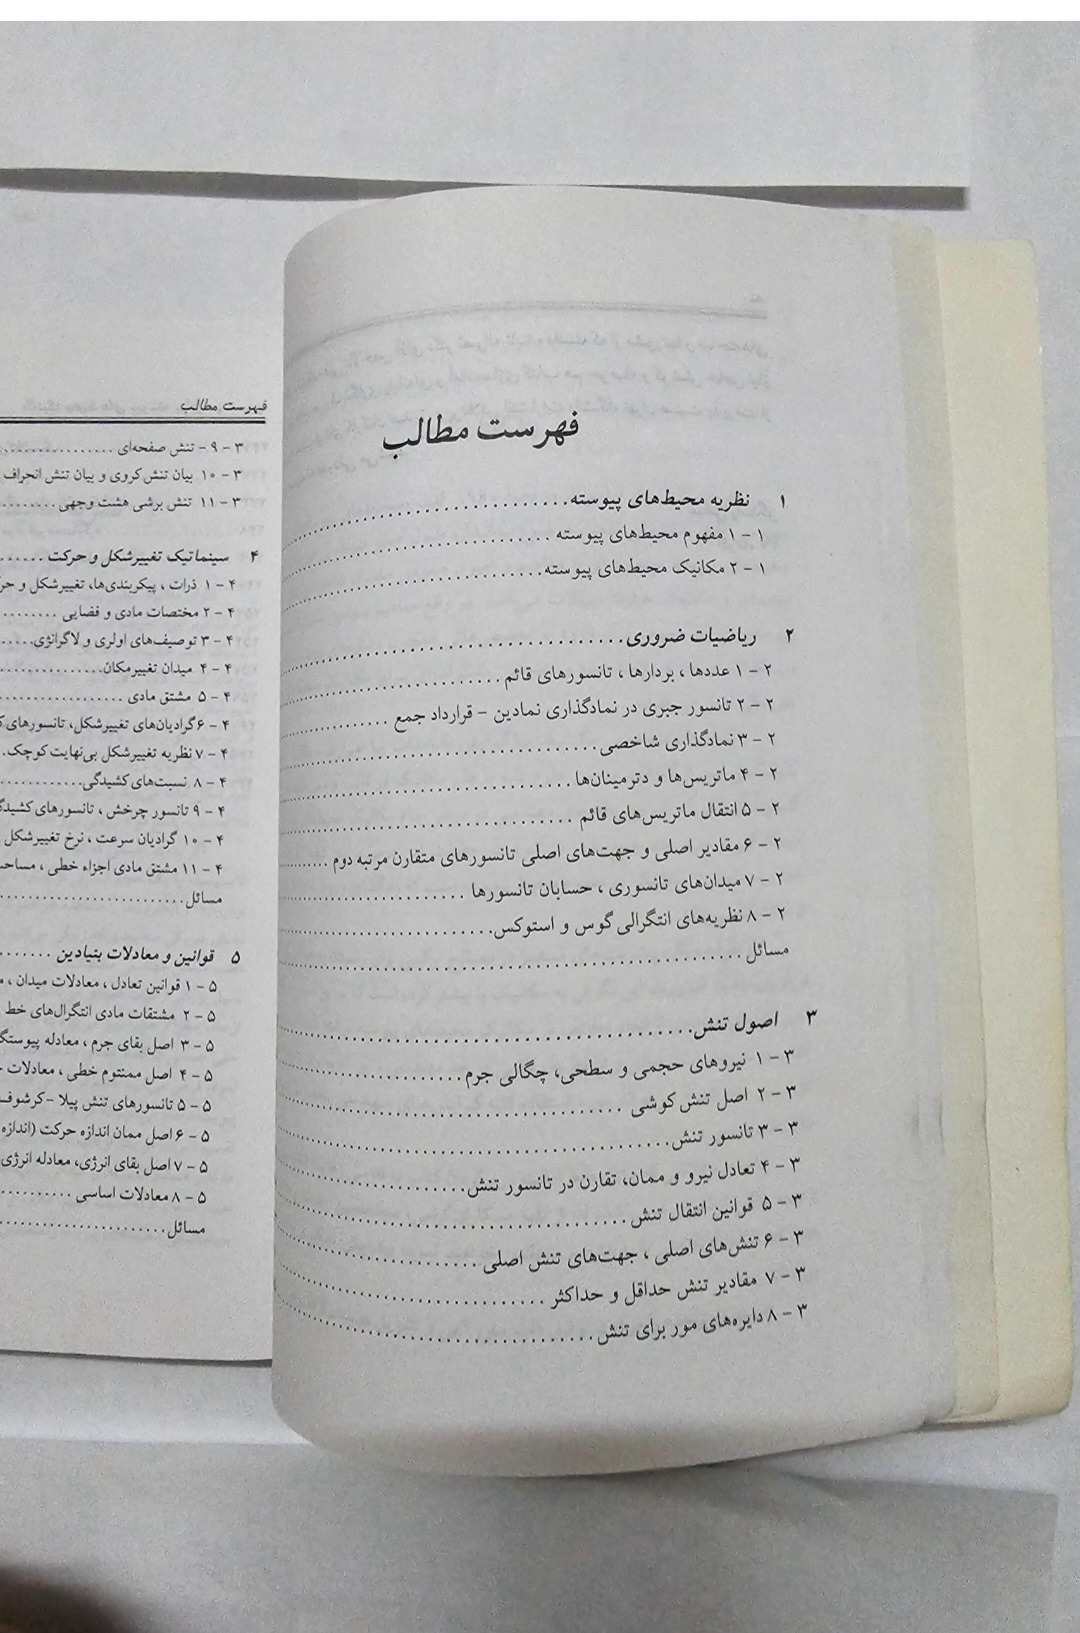 فهرست مطالب
۱ نظریه محیط‌های پیوسته
۱ - ۱ مفهوم محیط‌های پیوسته
۱ - ۲ مکانیک محیط‌های پیوسته
۲ ریاضیات ضروری
۲ - ۱ عددها ، بردارها ، تانسورهای قائم
۲ - ۲ تانسور جبری در نمادگذاری نمادین - قرارداد جمع
۲ - ۳ نمادگذاری شاخصی
۲ - ۴ ماتریس‌ها و دترمینان‌ها
۲ - ۵ انتقال ماتریس‌های قائم
۲ - ۶ مقادیر اصلی و جهت‌های اصلی تانسورهای متقارن مرتبه دوم
۲ - ۷ میدان‌های تانسوری ، حسابان تانسورها
۲ - ۸ نظریه‌های انتگرالی گوس و استوکس
مسائل
۳ اصول تنش
۳ - ۱ نیروهای حجمی و سطحی، چگالی جرم
۳ - ۲ اصل تنش کوشی
۳ - ۳ تانسور تنش
۳ - ۴ تعادل نیرو و ممان، تقارن در تانسور تنش
۳ - ۵ قوانین انتقال تنش
۳ - ۶ تنش‌های اصلی ، جهت‌های تنش اصلی
۳ - ۷ مقادیر تنش حداقل و حداکثر
۳ - ۸ دایره‌های مور برای تنش
فهرست مطالب
۳ - ۹ - تنش صفحه‌ای
۳ - ۱۰ بیان تنش کروی و بیان تنش انحراف
۳ - ۱۱ تنش برشی هشت وجهی
۴ سینماتیک تغییرشکل و حرکت
۴ - ۱ ذرات ، پیکربندی‌ها، تغییرشکل و
۴ - ۲ مختصات مادی و فضایی
۴ - ۳ توصیف‌های اولری و لاگرانژی
۴ - ۴ میدان تغییرمکان
۴ - ۵ مشتق مادی
۴ - ۶ گرادیان‌های تغییرشکل، تانسورهای
۴ - ۷ نظریه تغییرشکل بی‌نهایت کوچک
۴ - ۸ نسبت‌های کشیدگی
۴ - ۹ تانسور چرخش ، تانسورهای
۴ - ۱۰ گرادیان سرعت ، نرخ تغییرشکل
۴ - ۱۱ مشتق مادی اجزاء خطی ،
مسائل
۵ قوانین و معادلات بنیادین
۵ - ۱ قوانین تعادل ، معادلات میدان ،
۵ - ۲ مشتقات مادی انتگرال‌های خط
۵ - ۳ اصل بقای جرم ، معادله
۵ - ۴ اصل ممنتوم خطی ، معادلات
۵ - ۵ تانسورهای تنش پیلا -کرشوف
۵ - ۶ اصل ممان اندازه حرکت (اندازه
۵ - ۷ اصل بقای انرژی، معادله انرژی
۵ - ۸ معادلات اساسی
مسائل